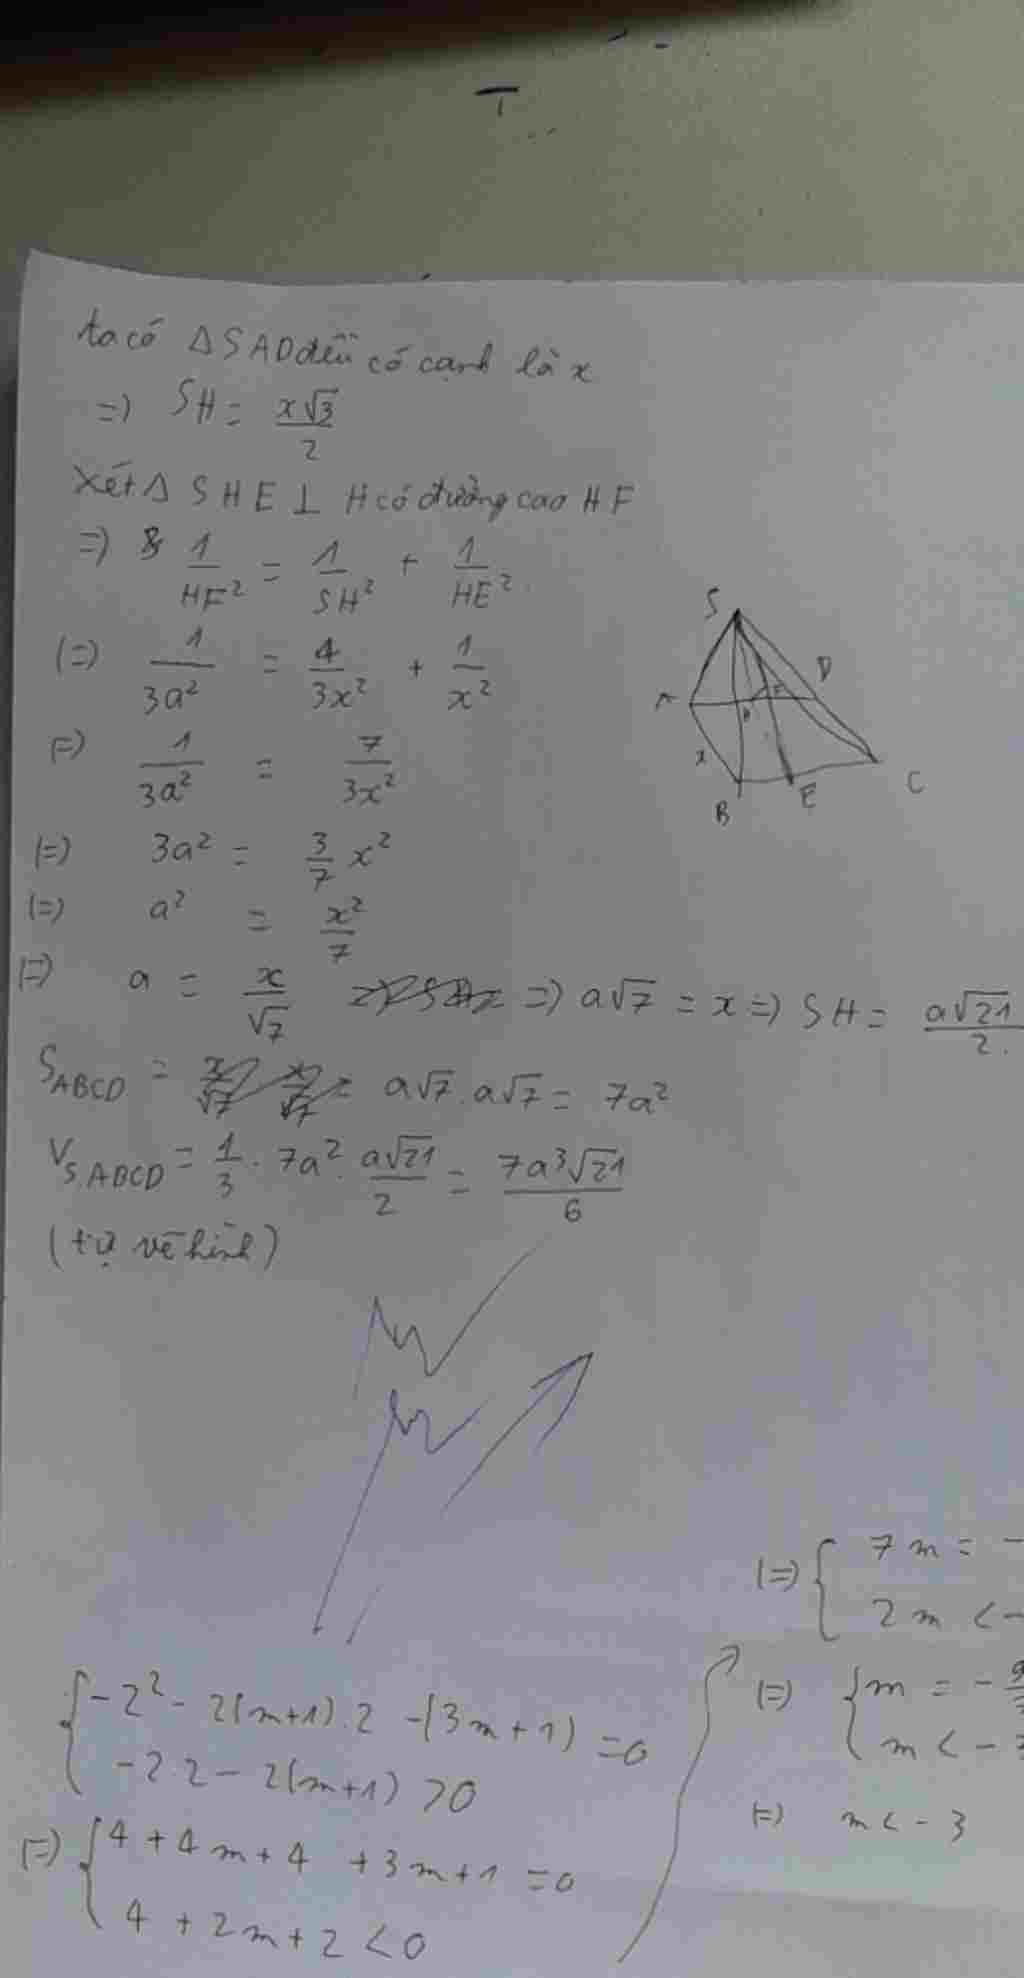 ta có Δ SAD đều có cạnh là x
=) SH = x√3/2
Xét Δ SHE ⊥ H có đường cao HF
=) 1/HF² = 1/SH² + 1/HE²
(=) 1/3a² = 4/3x² + 1/x²
(=) 1/3a² = 7/3x²
(=) 3a² = 3/7 x²
(=) a² = x²/7
(=) a = x/√7 =) a√7 = x =) SH = a√21/2
S_ABCD = a√7 . a√7 = 7a²
V_S.ABCD = 1/3 . 7a² . a√21/2 = 7a³√21/6
(tự vẽ hình)
S
A
D
H
F
x
B
E
C
{ -2² - 2(m+1).2 -(3m+1) = 0
-2 2 - 2(m+1) > 0
(=) { 4 + 4m + 4 + 3m + 1 = 0
4 + 2m + 2 < 0
(=) { 7m = -
2m < -
(=) { m = -
m < -
(=) m < -3